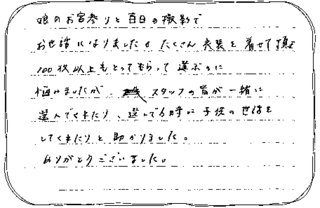 娘のお宮参りと百日の撮影で
お世話になりました。たくさん衣装を着せて頂き
100枚以上もとってもらって選ぶのに
悩みましたが スタッフの皆が一緒に
選んでくれたり、選んでる時に子供の世話を
してくれたりと助かりました。
ありがとうございました。